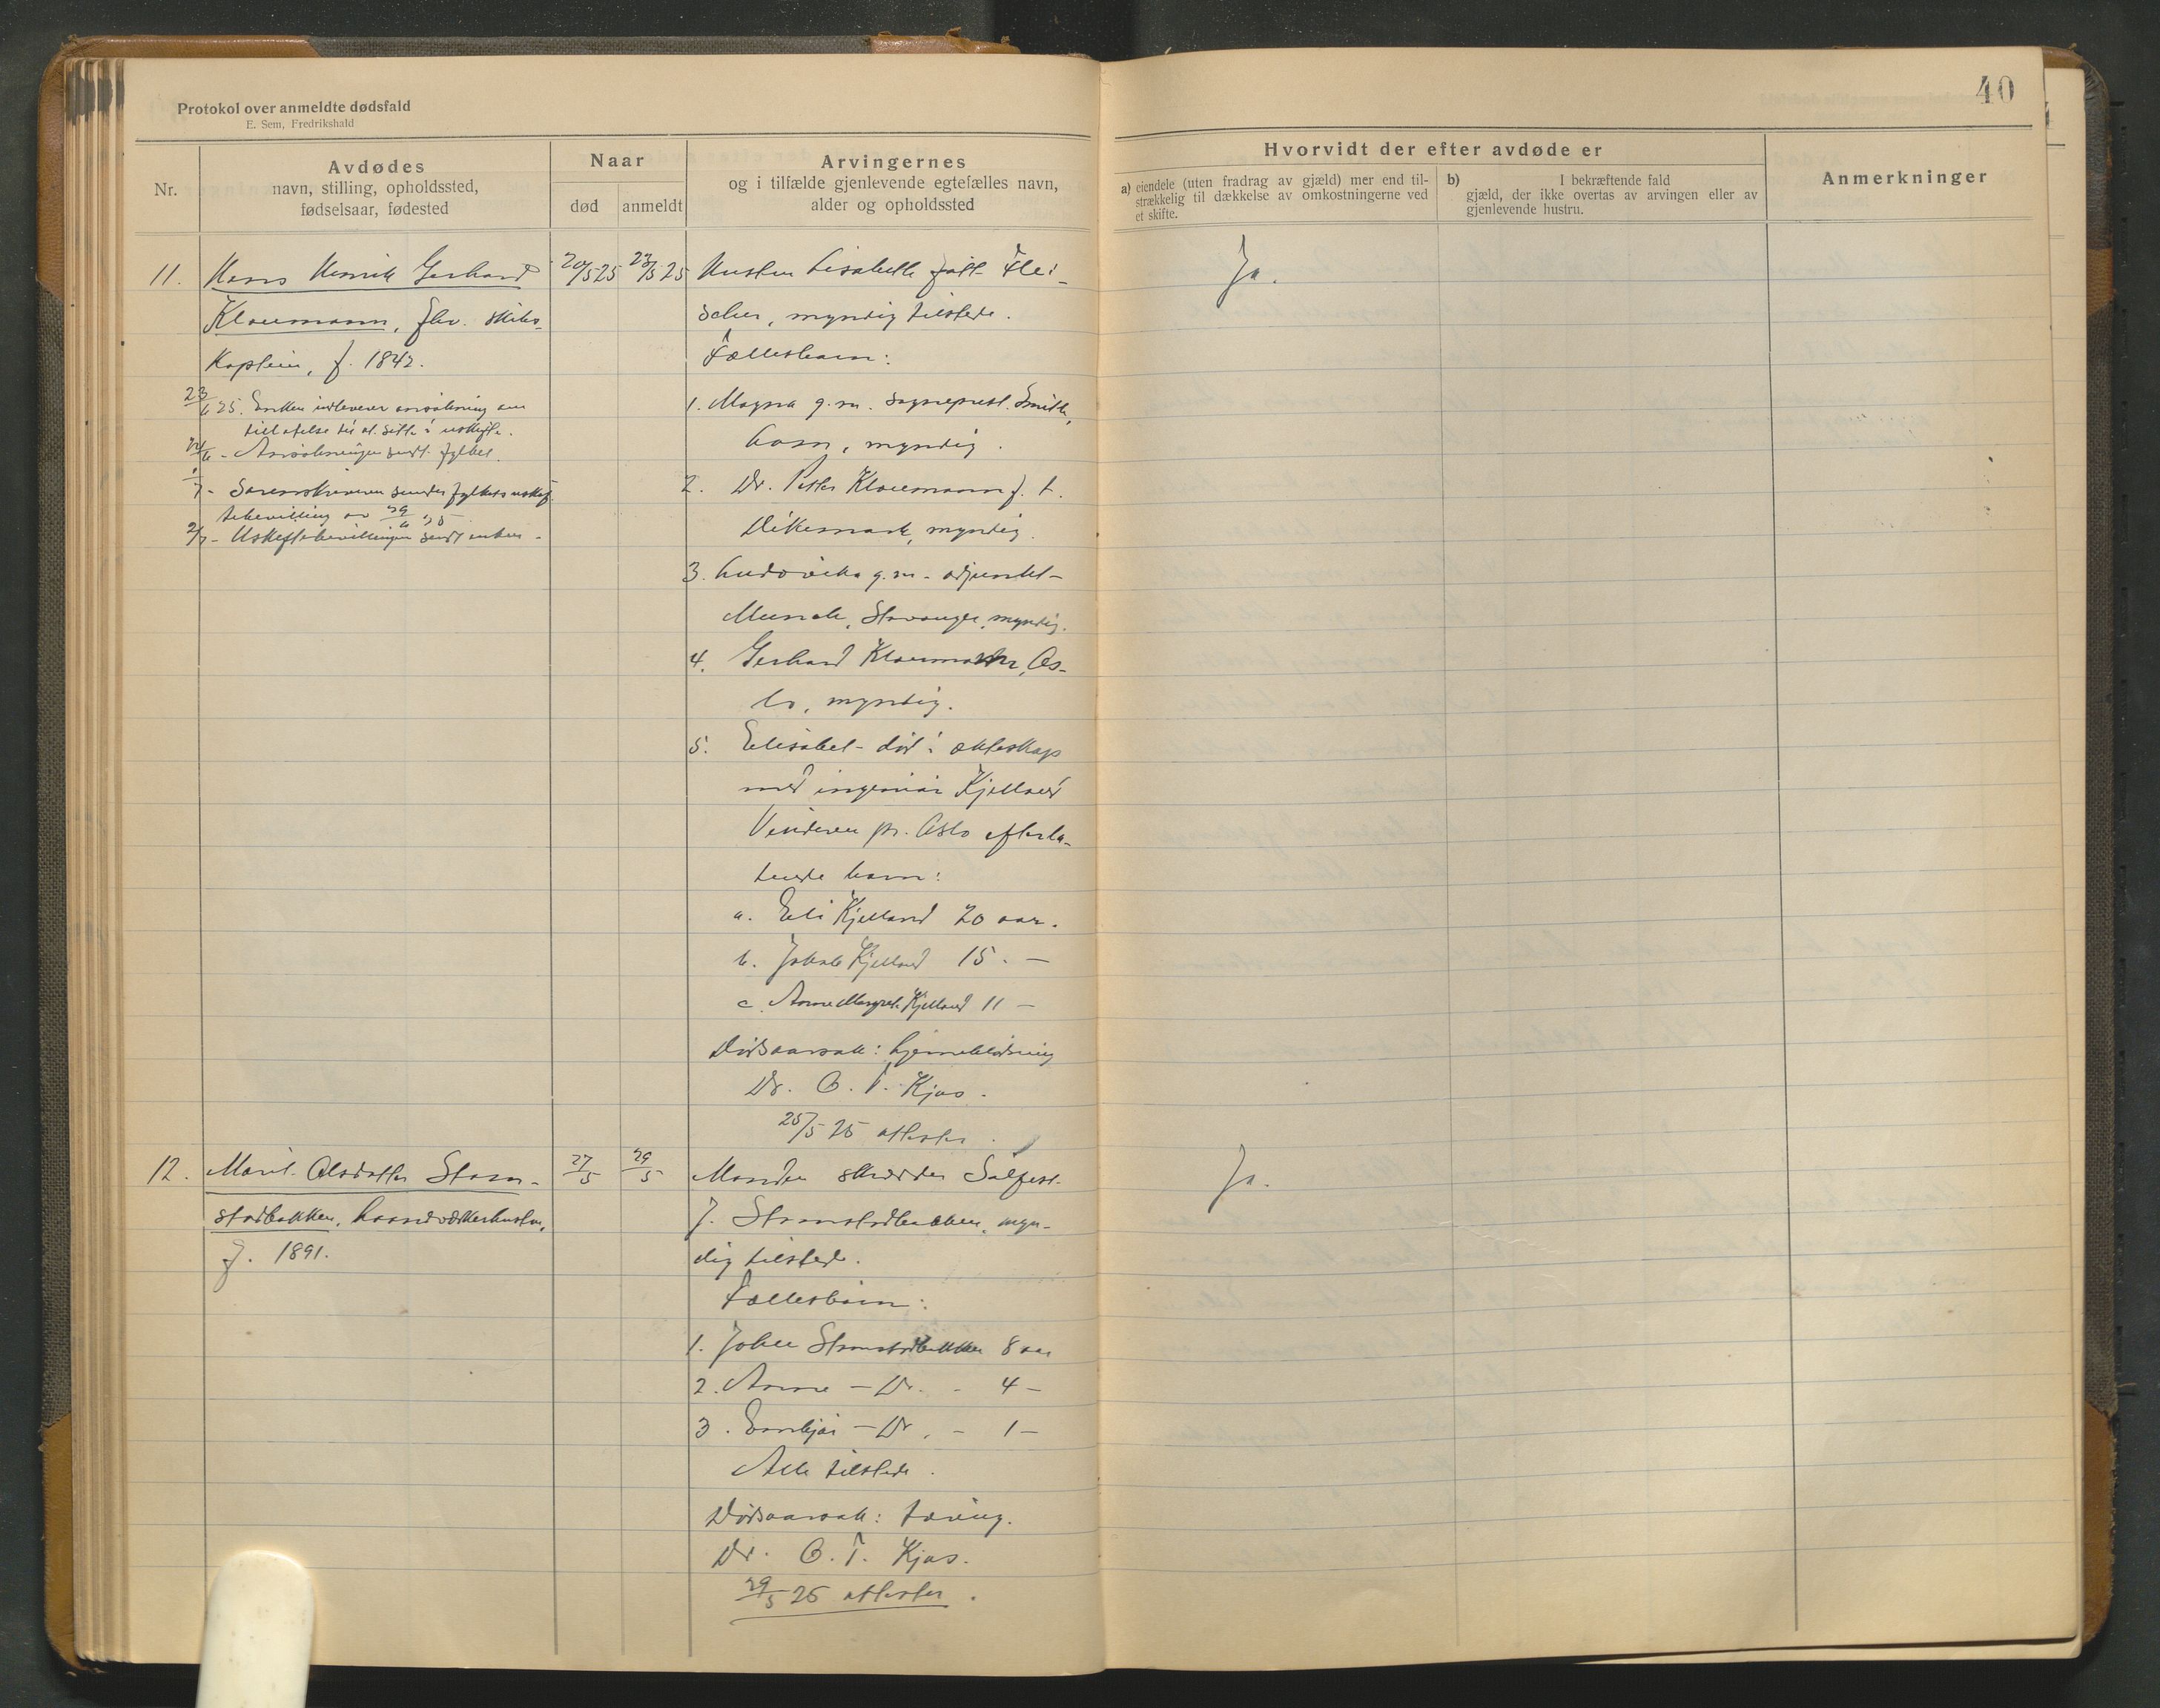 Protokol over anmeldte dødsfald
E. Sem, Fredrikshald
40
Nr.
Avdødes
navn, stilling, opholdssted,
fødselsaar, fødested
Naar
død
anmeldt
Arvingernes
og i tilfælde gjenlevende egtefælles navn,
alder og opholdssted
Hvorvidt der efter avdøde er
a) eiendele (uten fradrag av gjæld) mer end til-
strækkelig til dækkelse av omkostningerne ved
et skifte.
b) I bekræftende fald
gjæld, der ikke overtas av arvingen eller av
gjenlevende hustru.
Anmerkninger
11.
Hans Henrik Gerhard
Kloumann, fhv. skibs-
kaptein, f. 1842.
23/6 25. Enken indleverer ansökning om
tillatelse til at sitte i uskifte.
24/6 - Ansökningen sendt fylket.
1/7 - Sorenskriveren sender fylkets uskif-
tebevilling av 29/6 25
2/7 - Uskiftebevillingen sendt enken -
20/5 25
23/5 25
Hustru Lisabeth født Flei-
scher, myndig tilstede.
Fællesbarn:
1. Magna g.m. sogneprest Smith,
, myndig.
2. Dr. Petter Kloumann f. t.
Dikemark, myndig.
3. Ludovika g.m. adjunkt
Munch, Stavanger, myndig.
4. Gerhard Kloumann, Os-
lo, myndig.
5. Elisabet død i ækteskap
med ingeniör Kjelland
Vinderen pr. Oslo efterla-
tende barn:
a. Eli Kjelland 20 aar.
b. Jakob Kjelland 15. -
c. Anne Margrete Kjelland 11 -
Dödsaarsak: hjerneblödning
Dr. O. T. Kjos.
25/5 25 attester.
Ja.
12.
Marit Olsdatter Stam-
stadbakken, haandværkerhustru,
f. 1891.
27/5
29/5
Manden skrædder Sulfest
J. Stamstadbakken, myn-
dig tilstede.
Fællesbarn:
1. Johan Stamstadbakken 8 aar
2. Anna - Do. - 4 -
3. Ernbjør - Do. - 1 -
Alle tilstede.
Dödsaarsak: tæring.
Dr. O. T. Kjos.
29/5 25 attester.
Ja.